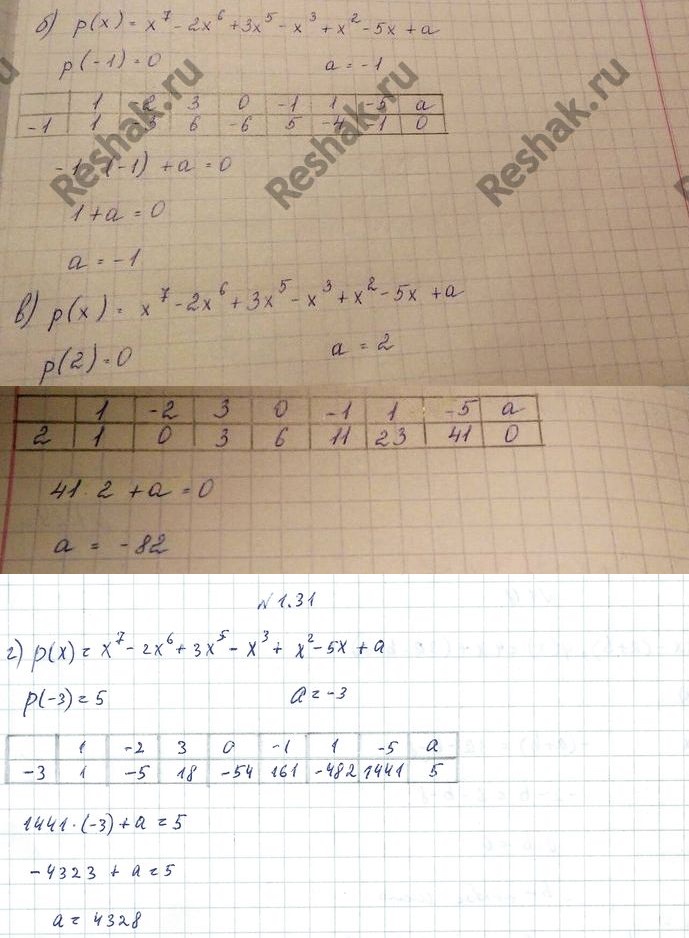 б) p(x) = x⁷ - 2x⁶ + 3x⁵ - x³ + x² - 5x + a
p(-1) = 0 a = -1
1 -2 3 0 -1 1 -5 a
-1 1 -3 6 -6 5 -4 -1 0
-1 · (-1) + a = 0
1 + a = 0
a = -1
в) p(x) = x⁷ - 2x⁶ + 3x⁵ - x³ + x² - 5x + a
p(2) = 0 a = 2
1 -2 3 0 -1 1 -5 a
2 1 0 3 6 11 23 41 0
41 · 2 + a = 0
a = -82
N 1.31
г) p(x) = x⁷ - 2x⁶ + 3x⁵ - x³ + x² - 5x + a
p(-3) = 5 a = -3
1 -2 3 0 -1 1 -5 a
-3 1 -5 18 -54 161 -482 1441 5
1441 · (-3) + a = 5
-4323 + a = 5
a = 4328
Reshak.ru
Reshak.ru
Reshak.ru